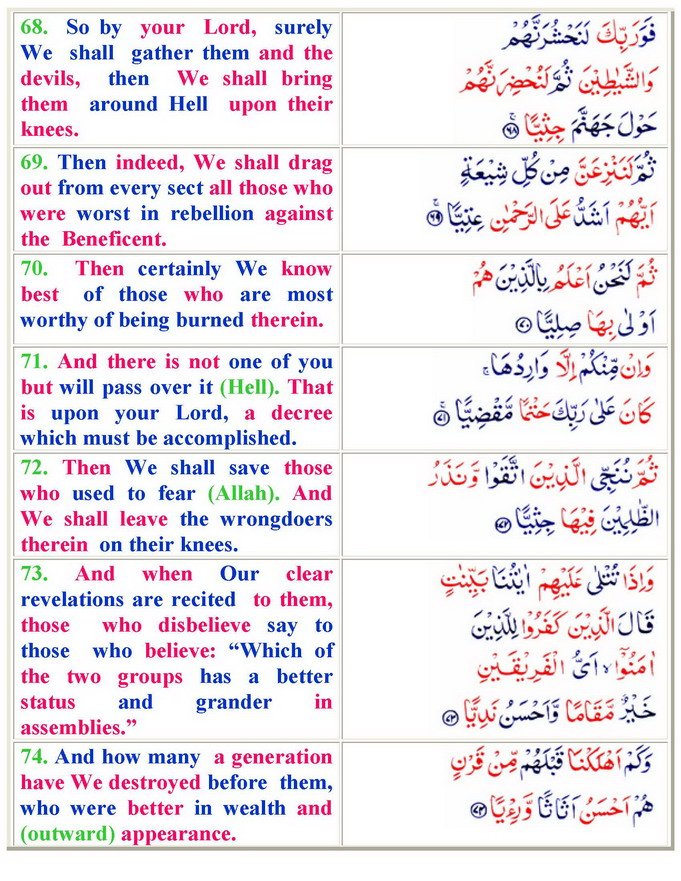 68. So by your Lord, surely
We shall gather them and the
devils, then We shall bring
them around Hell upon their
knees.
فَوَرَبِّكَ لَنَحْشُرَنَّهُمْ
وَالشَّيٰطِيْنَ ثُمَّ لَنُحْضِرَنَّهُمْ
حَوْلَ جَهَنَّمَ جِثِيًّا ۶۸
69. Then indeed, We shall drag
out from every sect all those who
were worst in rebellion against
the Beneficent.
ثُمَّ لَنَنْزِعَنَّ مِنْ كُلِّ شِيْعَةٍ
اَيُّهُمْ اَشَدُّ عَلَى الرَّحْمٰنِ عِتِيًّا ۶۹
70. Then certainly We know
best of those who are most
worthy of being burned therein.
ثُمَّ لَنَحْنُ اَعْلَمُ بِالَّذِيْنَ هُمْ
اَوْلٰى بِهَا صِلِيًّا ۷۰
71. And there is not one of you
but will pass over it (Hell). That
is upon your Lord, a decree
which must be accomplished.
وَاِنْ مِّنْكُمْ اِلَّا وَارِدُهَا ۚ
كَانَ عَلٰى رَبِّكَ حَتْمًا مَّقْضِيًّا ۷۱
72. Then We shall save those
who used to fear (Allah). And
We shall leave the wrongdoers
therein on their knees.
ثُمَّ نُنَجِّى الَّذِيْنَ اتَّقَوْا وَّنَذَرُ
الظّٰلِمِيْنَ فِيْهَا جِثِيًّا ۷۲
73. And when Our clear
revelations are recited to them,
those who disbelieve say to
those who believe: “Which of
the two groups has a better
status and grander in
assemblies.”
وَاِذَا تُتْلٰى عَلَيْهِمْ اٰيٰتُنَا بَيِّنٰتٍ
قَالَ الَّذِيْنَ كَفَرُوْا لِلَّذِيْنَ
اٰمَنُوْۤا ۙ اَىُّ الْفَرِيْقَيْنِ
خَيْرٌ مَّقَامًا وَّاَحْسَنُ نَدِيًّا ۷۳
74. And how many a generation
have We destroyed before them,
who were better in wealth and
(outward) appearance.
وَكَمْ اَهْلَكْنَا قَبْلَهُمْ مِّنْ قَرْنٍ
هُمْ اَحْسَنُ اَثَاثًا وَّرِءْيًا ۷۴